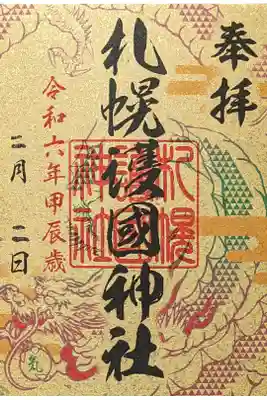 奉拝
札幌護國神社
札幌護國神社
令和六年甲辰歳
二月 二日